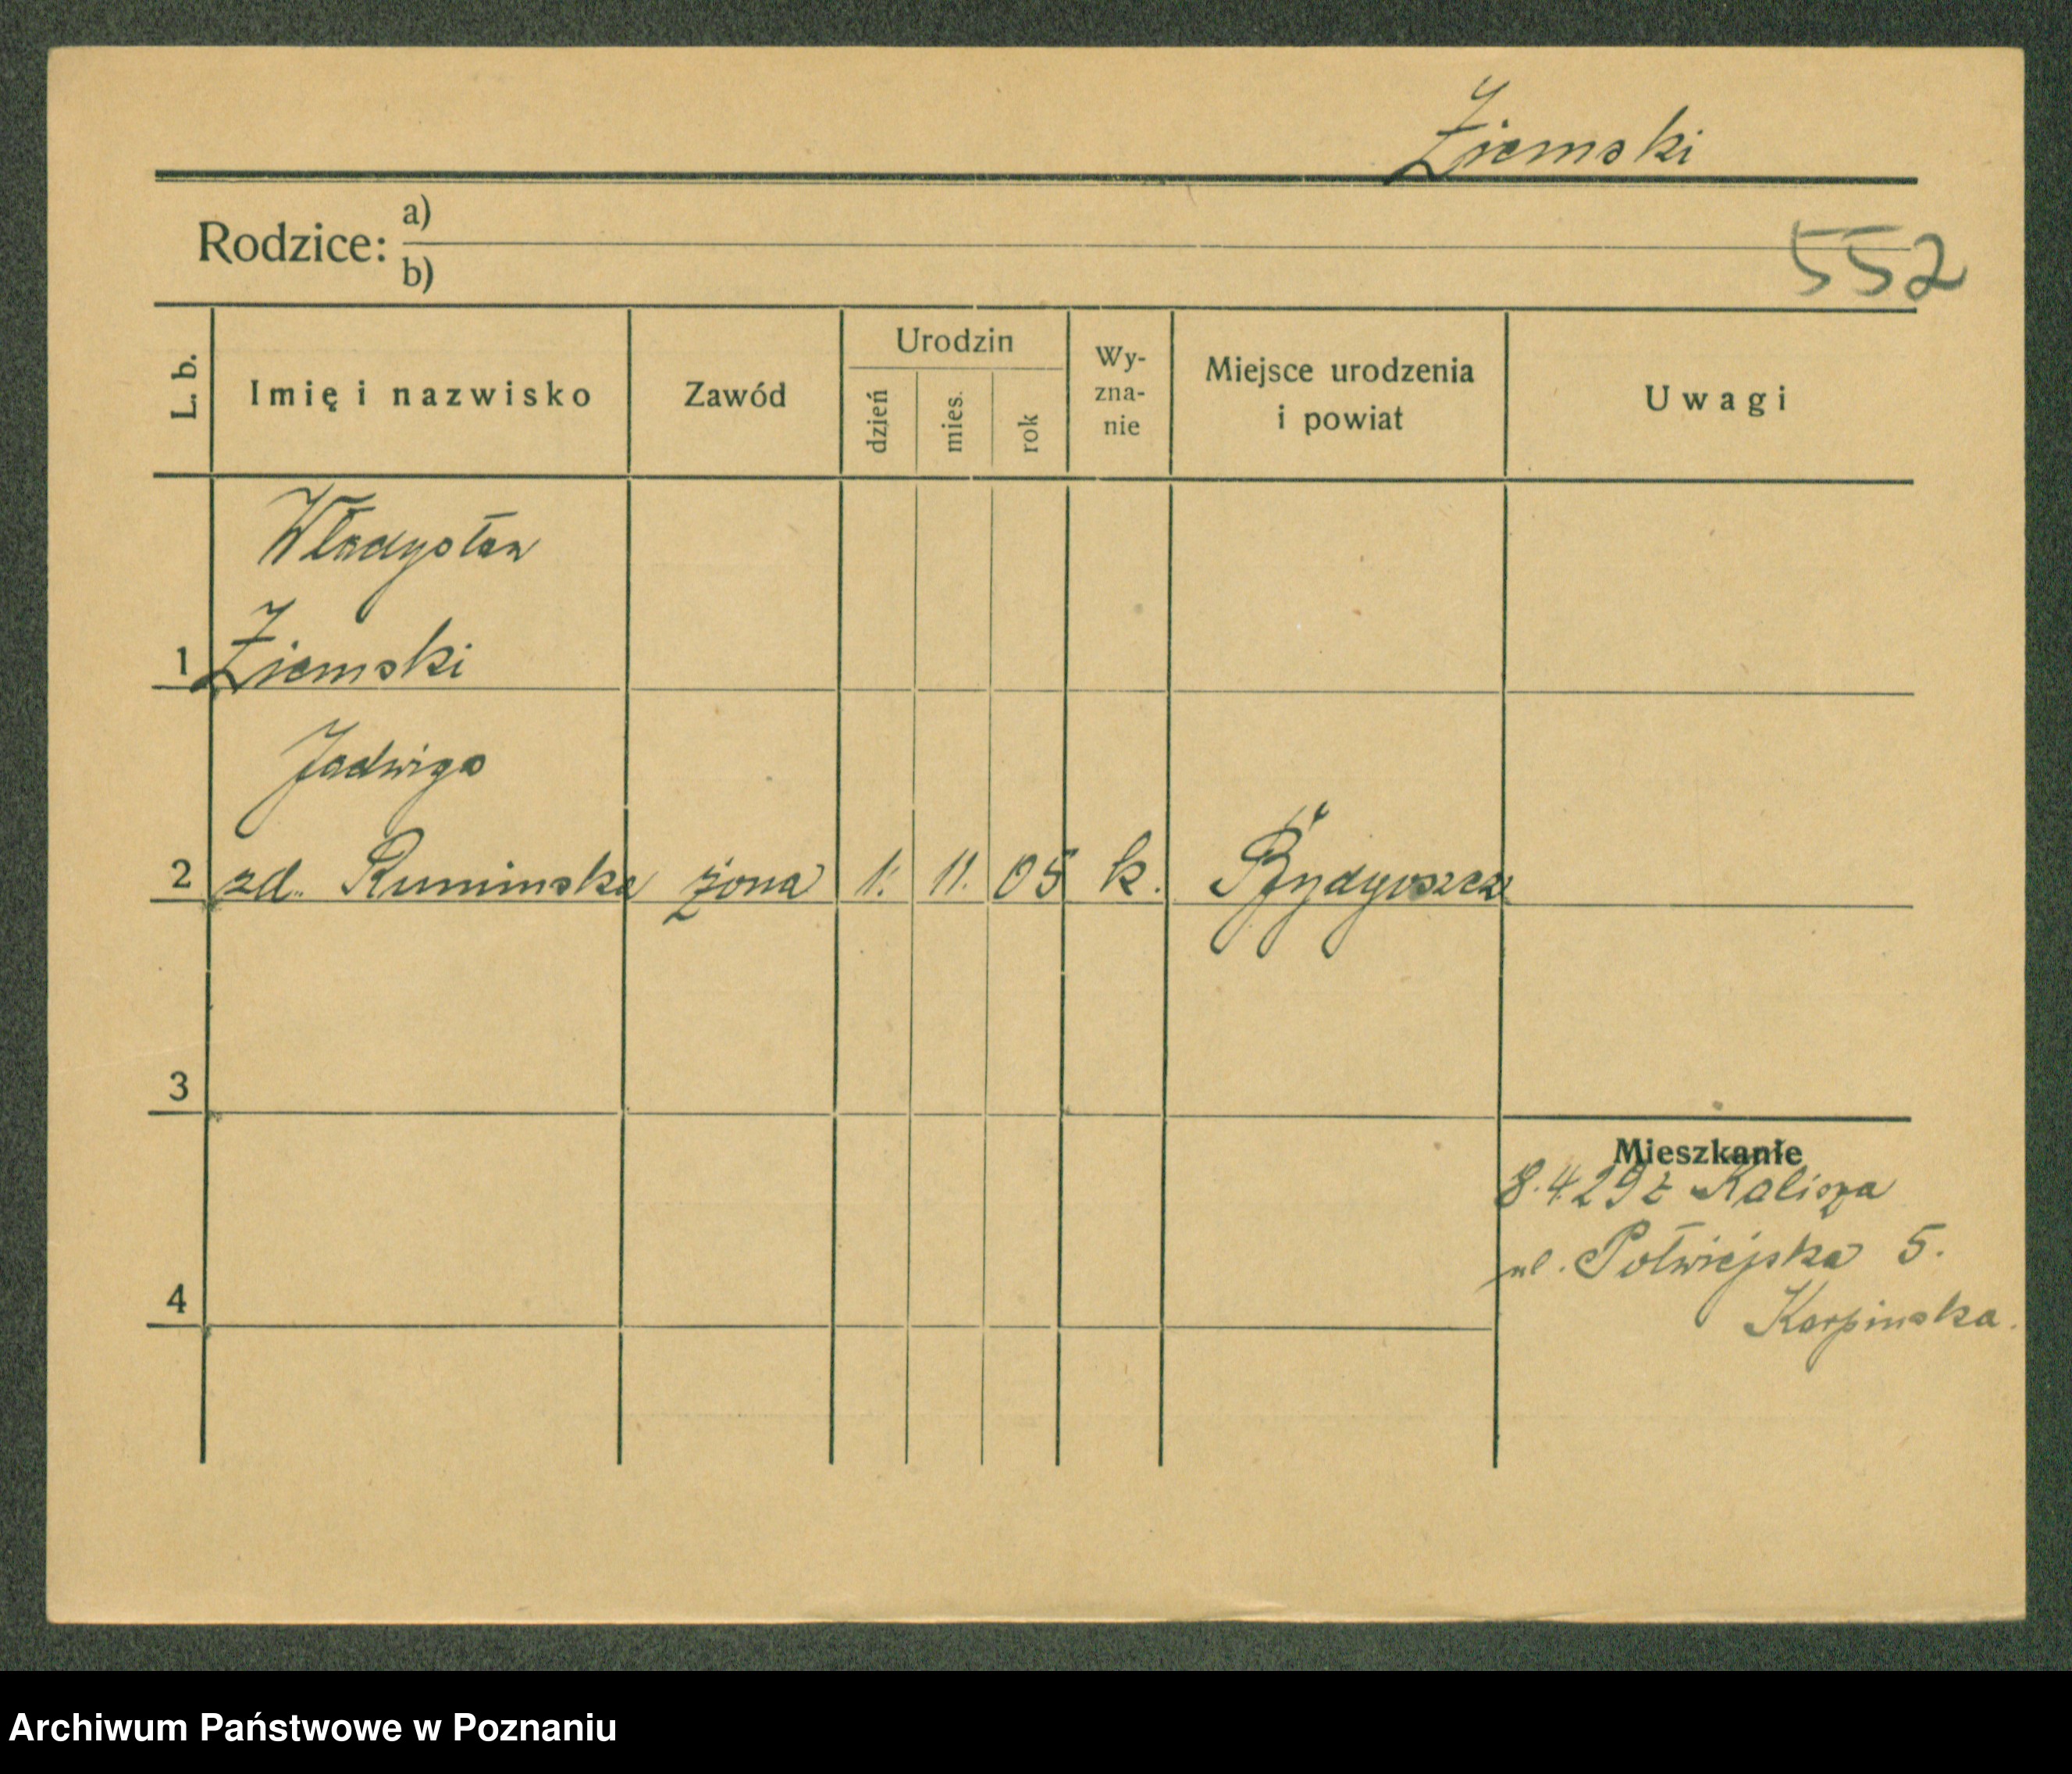 Ziemski
Rodzice: a)
b)
552
L. b. Imię i nazwisko Zawód Urodzin dzień mies. rok Wy-zna-nie Miejsce urodzenia i powiat Uwagi
Władysław
1 Ziemski
Jadwiga
2 zd. Rumińska żona 1. 11. 05 k. Bydgoszcz
3
Mieszkanie
8.4.29 z Kalisza
ul. Półwiejska 5.
4
Karpinska.
Archiwum Państwowe w Poznaniu